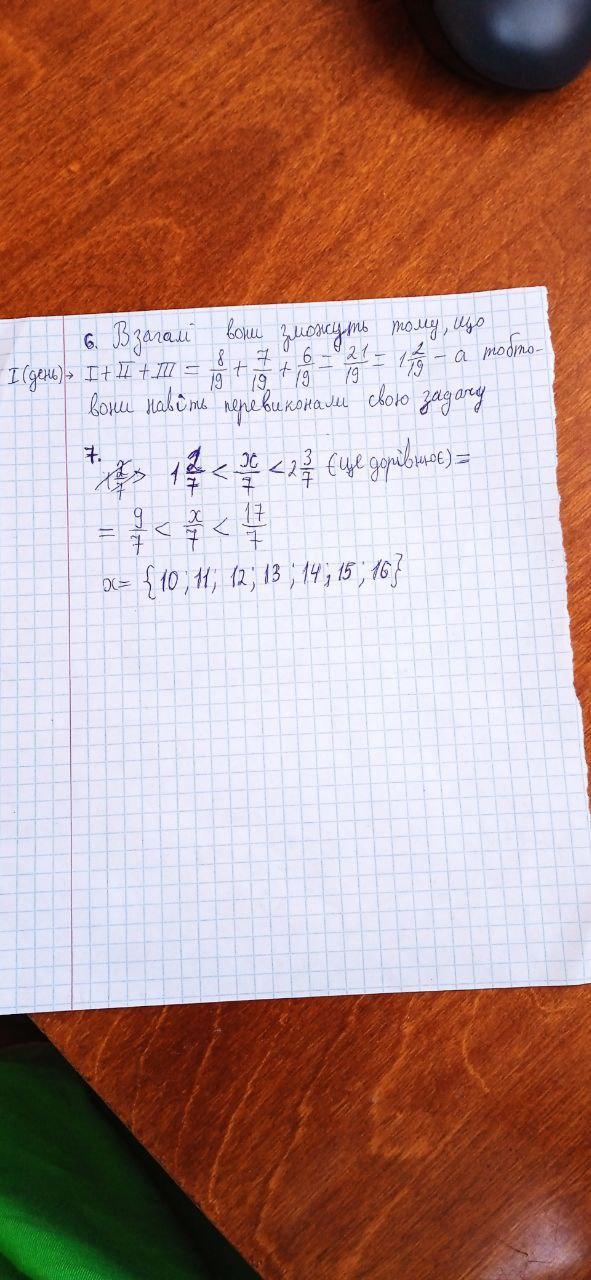 6. Взагалі вони зможуть тому, що
I(день)→ I+II+III = 8/19 + 7/19 + 6/19 = 21/19 = 1 2/19 – а тобто-
вони навіть перевиконали свою задачу
7.
1 2/7 < x/7 < 2 3/7 (ще дорівнює) =
= 9/7 < x/7 < 17/7
x = {10; 11; 12; 13; 14; 15; 16}